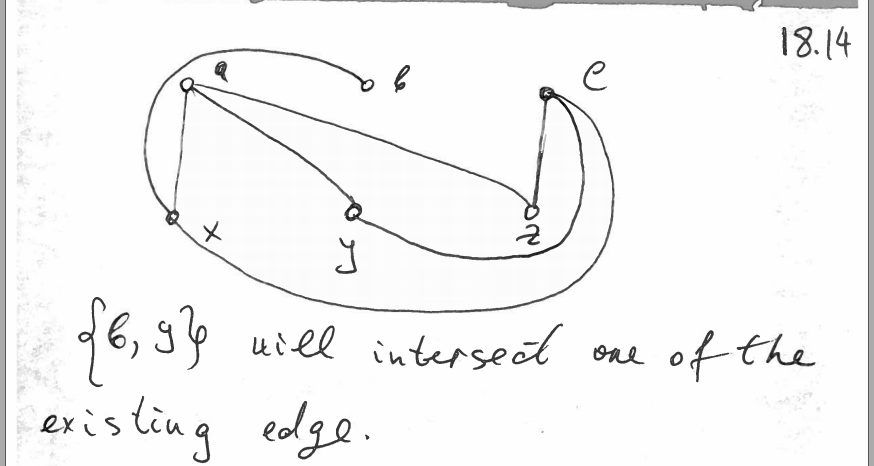 18.14
a b c
x y z
{b, y} will intersect one of the
existing edge.